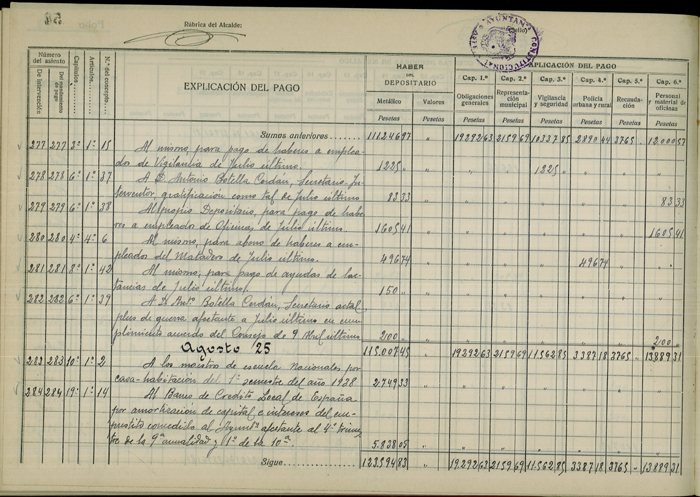 Rúbrica del Alcalde:
AYUNTAMIENTO CONSTITUCIONAL
Número del asiento
De intervención
Del mandamiento de pago
Capítulos
Artículos
N.º del concepto
EXPLICACIÓN DEL PAGO
HABER DEL DEPOSITARIO
Metálico
Valores
Pesetas
Pesetas
APLICACIÓN DEL PAGO
Cap. 1.º
Obligaciones generales
Pesetas
Cap. 2.º
Representación municipal
Pesetas
Cap. 3.º
Vigilancia y seguridad
Pesetas
Cap. 4.º
Policía urbana y rural
Pesetas
Cap. 5.º
Recaudación
Pesetas
Cap. 6.º
Personal y material de oficinas
Pesetas
Sumas anteriores 111246 97 " 19292 63 2159 69 10337 85 2890 44 3765 - 12000 57
277 277 3º 1º 15 Al mismo, para pago de haberes a emplea-
dos de Vigilancia de Julio último 1225 " 1225
278 278 6º 1º 37 A D. Antonio Botella Cerdán, Secretario In-
terventor, gratificación como tal de Julio último 83 33 83 33
279 279 6º 1º 38 Al propio Depositario, para pago de habe-
res a empleados de Oficinas de Julio último 1605 41 1605 41
280 280 4º 4º 6 Al mismo, para abono de haberes a em-
pleados del Matadero de Julio último. 496 74 496 74
281 281 8º 1º 42 Al mismo, para pago de ayudas de lac-
tancias de Julio último. 150 "
282 282 6º 1º 39 A D. Antº Botella Cerdán, Secretario actal,
plus de guerra afectante a Julio último en cum-
plimiento acuerdo del Consejo de 9 Abril último 200 " 200 "
Agosto 25 115.007 45 19292 63 2159 69 11562 85 3387 18 3765 - 13889 31
283 283 10º 1º 2 A los maestros de escuelas Nacionales, por
casa-habitación del 1º semestre del año 1938 2749 33
284 284 19º 1º 14 Al Banco de Crédito Local de España
por amortización de capital e intereses del em-
préstito concedido al Ayuntº afectante al 4º trimes-
tre de la 9ª anualidad y 1º de la 10ª. 5.838 05
Sigue 123594 83 " 19292 63 2159 69 11562 85 3387 18 3765 - 13889 31